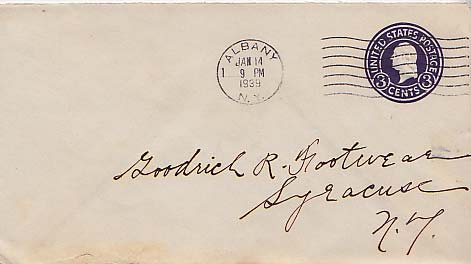 ALBANY
JAN 14
1 9 PM
1939
N.Y.
UNITED STATES POSTAGE
3 CENTS 3
Goodrich R. Footwear
Syracuse
N.Y.